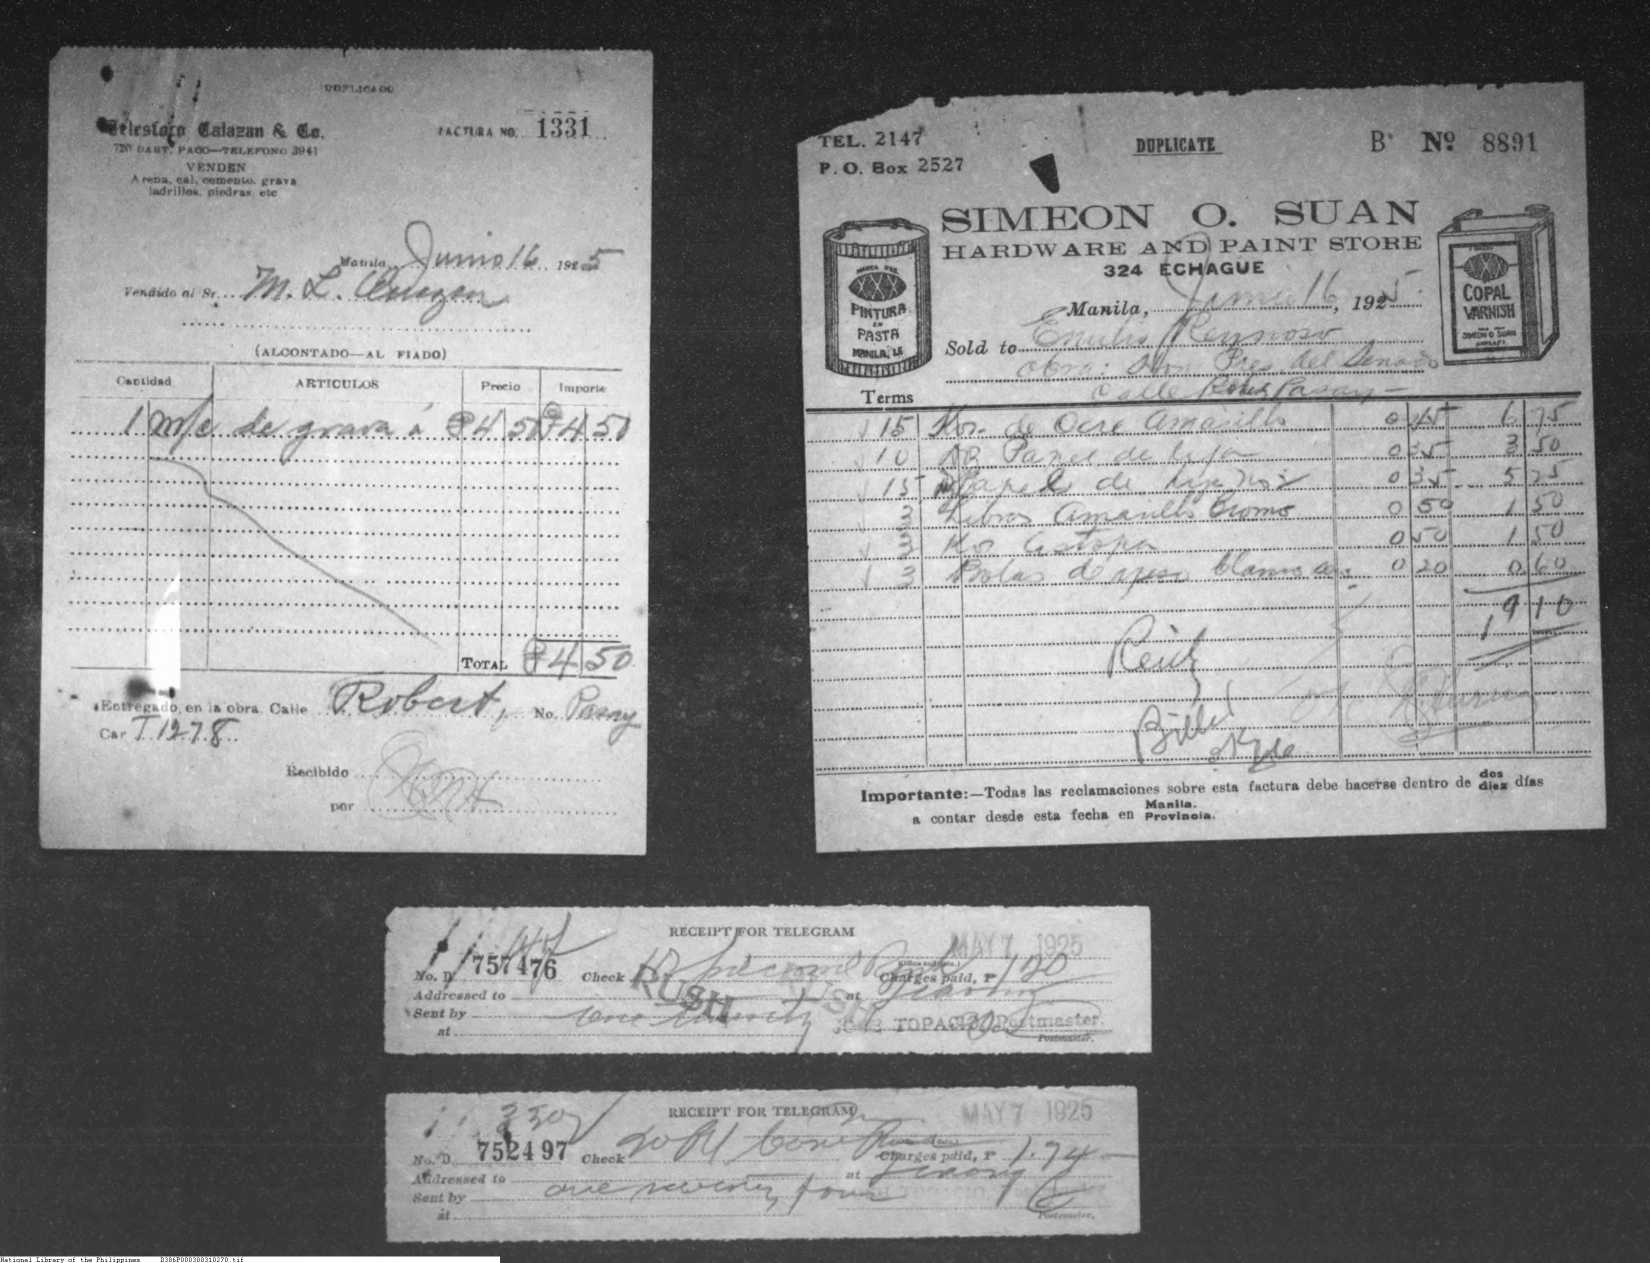 DUPLICADO
Telesforo Calazan & Co.
FACTURA NO. 1331
720 DART. PACO—TELEFONO 3941
VENDEN
Arena, cal, cemento, grava
ladrillos, piedras, etc
Manila, Junio 16, 1925
Vendido al Sr. M. L. Quezon
(ALCONTADO—AL FIADO)
Cantidad ARTICULOS Precio Importe
1 m/c de grava á ₱4 50 ₱4 50
TOTAL ₱4 50
Entregado en la obra Calle Robert, No. Pasay
Car T 1278
Recibido
por
TEL. 2147
P. O. Box 2527
DUPLICATE
B Nº 8891
SIMEON O. SUAN
HARDWARE AND PAINT STORE
324 ECHAGUE
PINTURA
EN
PASTA
MANILA, I.F.
COPAL
VARNISH
SIMEON O. SUAN
Manila, Junio 16, 1925
Sold to Emilio Reynoso
Obra: Hon. Pres. del Senado
Calle Robert Pasay
Terms
15 Kos. de Ocre Amarillo 0 45 6 75
10 Papel de lija 0 35 3 50
15 Papel de lija No. 2 0 35 5 25
3 Libras Amarillo Cromo 0 50 1 50
3 Kos. Estopa 0 50 1 50
3 Bolas de yeso blanco 0 20 0 60
19 10
Importante:—Todas las reclamaciones sobre esta factura debe hacerse dentro de dos diez días
a contar desde esta fecha en Manila. Provincia.
RECEIPT FOR TELEGRAM
MAY 7 1925
No. D. 757476 Check Charges paid, ₱ 1.20
RUSH RUSH
Addressed to at
Sent by one twenty
TOPACIO, Postmaster.
at Postmaster.
RECEIPT FOR TELEGRAM
MAY 7 1925
No. D. 752497 Check Charges paid, ₱ 1.74
Addressed to at
Sent by one seventy four
at Postmaster.
National Library of the Philippines D386P000300310270.tif